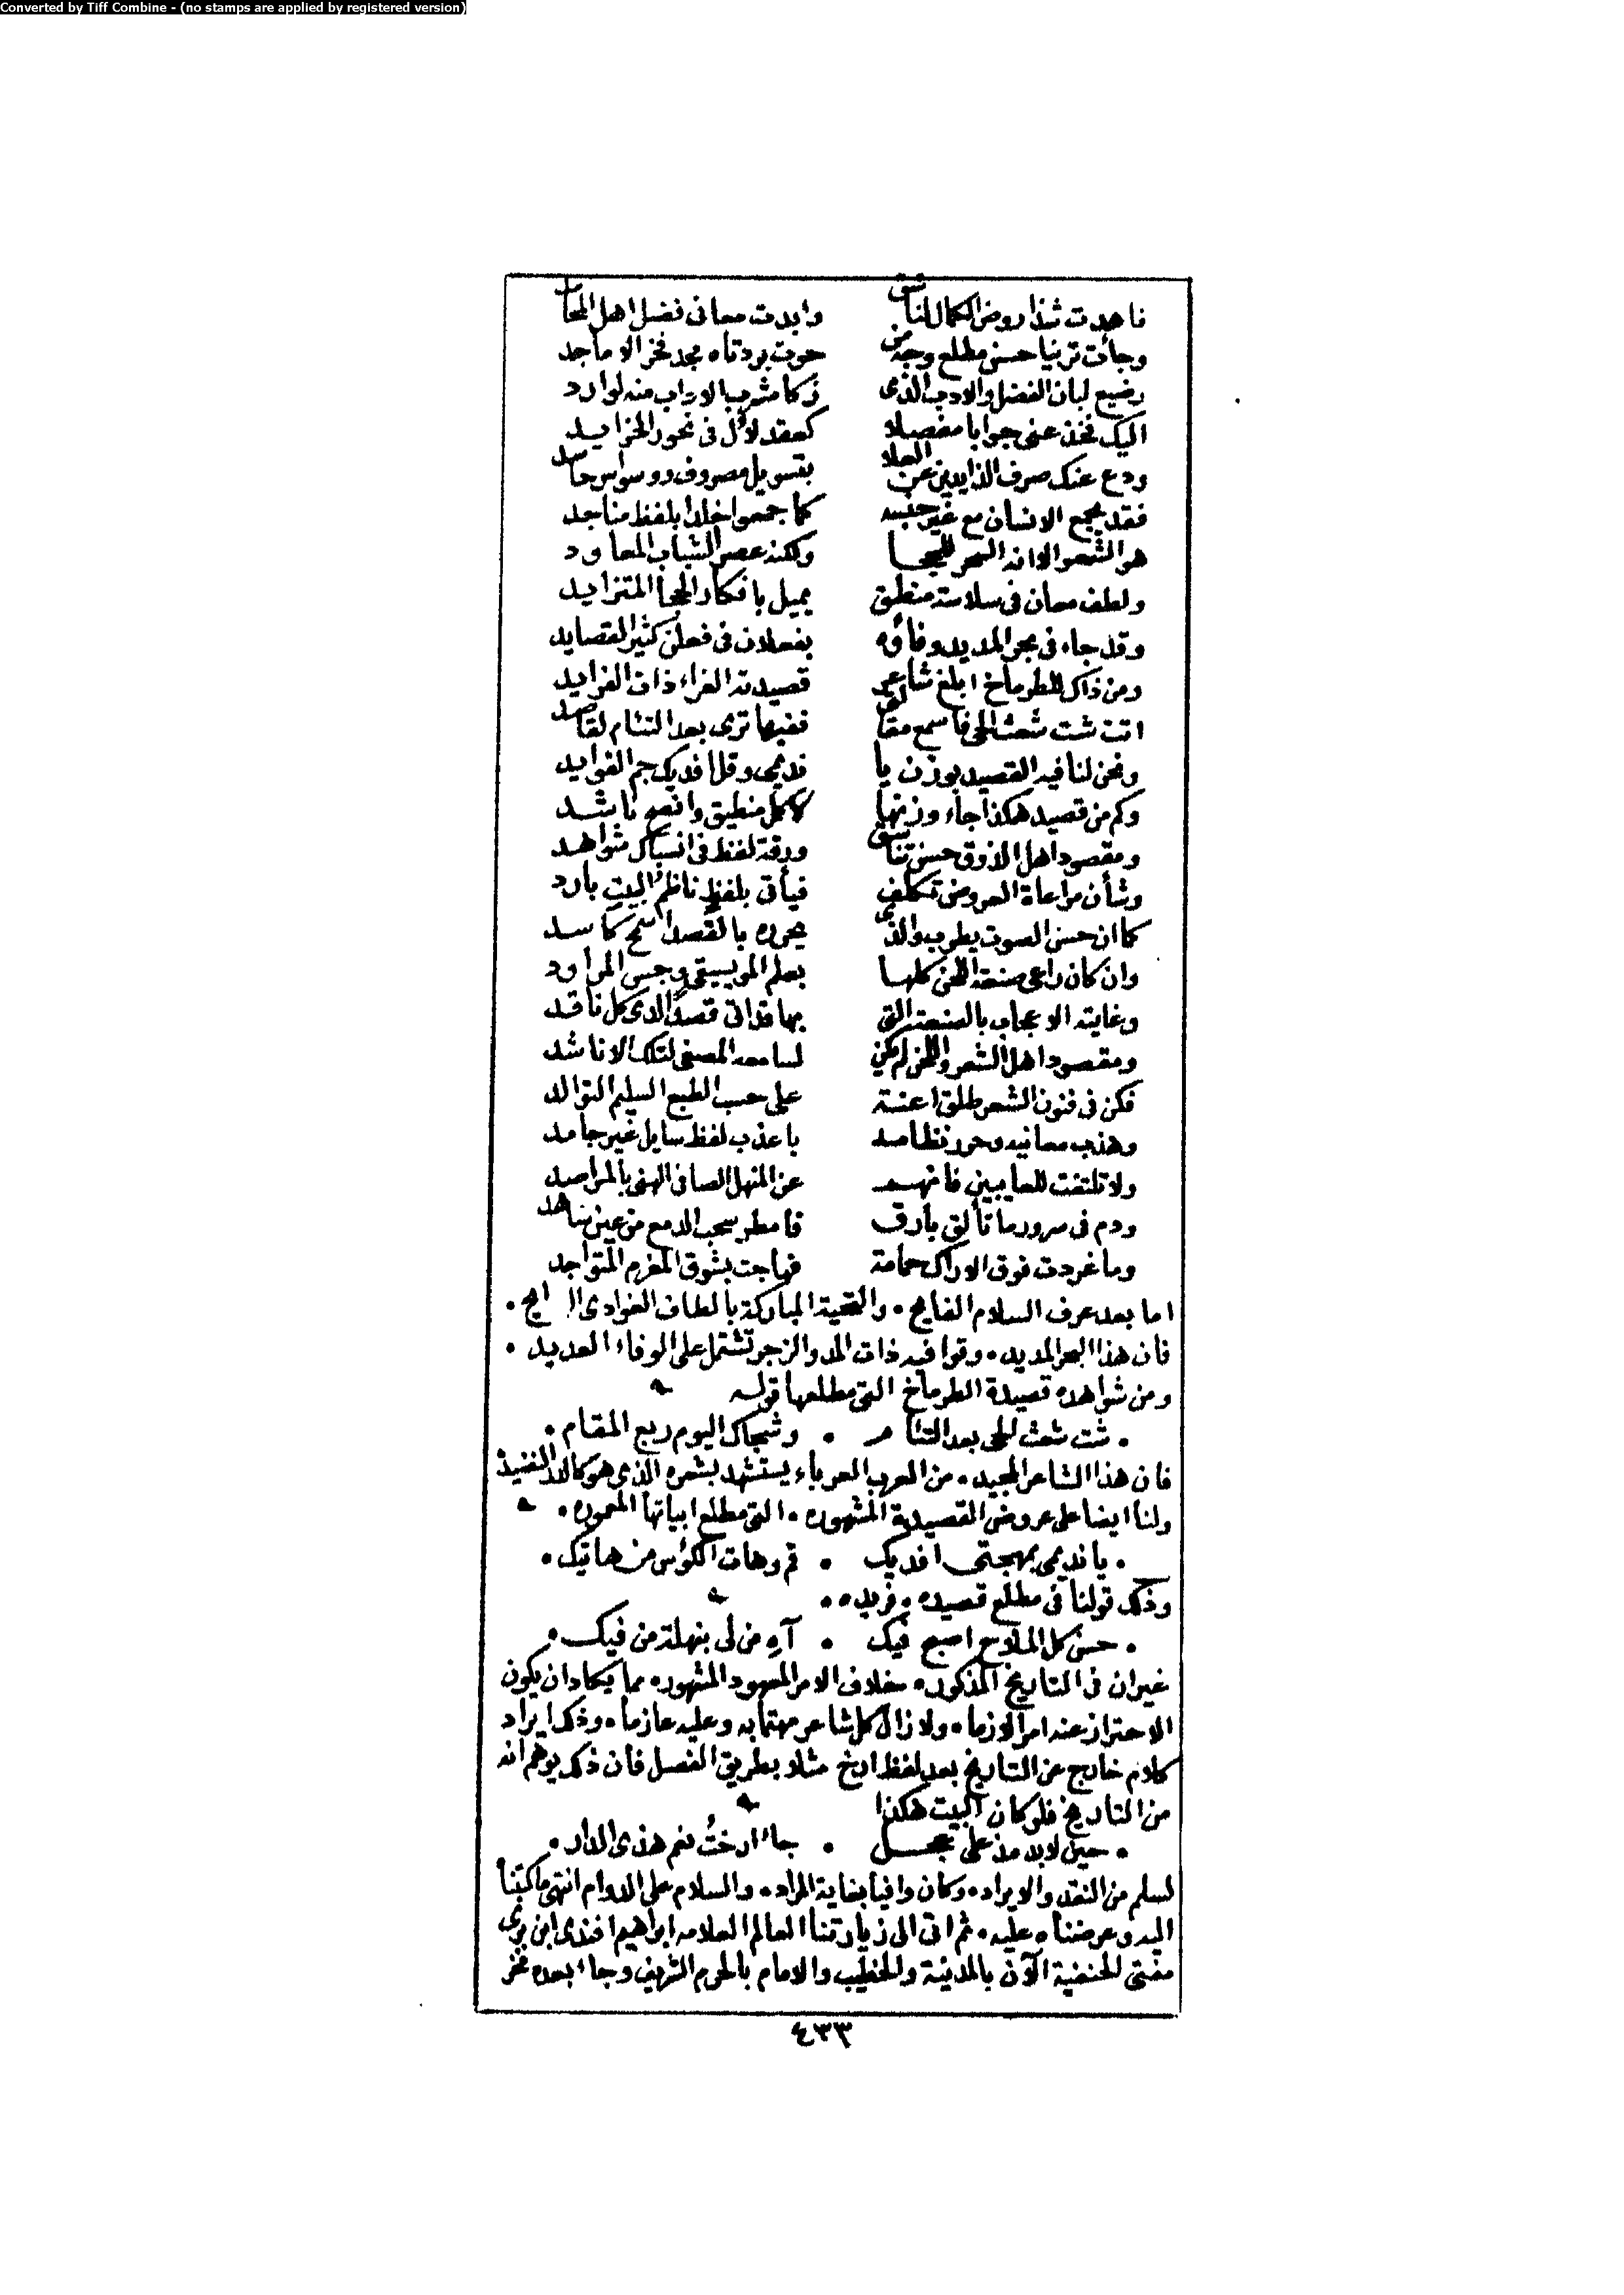 Converted by Tiff Combine - (no stamps are applied by registered version)
فاهدت شذا روض الكمال لناشق وابدت معانى فضل اهل المحامد
وجأت ترينا حسن مطلع وجه من حوت بردتاه مجد فخر الاماجد
رضيع لبان الفضل والادب الذى زكا مشرب الاداب منه لوارد
اليك فخذ عنى جوابا مفصلا كعقد لآل فى نحور الخرايد
ودع عنك صرف الذايدين عن العلا بتسويل مصروف ووسواس حاسد
فقد يجمع الانسان مع غير جنسه كما جمعوا خلدا بلفظ مناجد
هو الشعر الا انه السحر للحجا ولكنه عصر الشباب المعاود
ولطف معان فى سلاسة منطق يميل بافكار الحجا المتزايد
وقد جاء فى بحر المديد وفاؤه بفعلان فى فعلن كثير القصايد
ومن ذاك للطرماخ ابلغ شاعر قصيدته الغراء ذات الفرايد
اتت شت شعث الحى فاسمع مقاله ففيها ترى بعد التئام لقاصد
ونحن لنا فيه القصيد بوزن يا نديمى وقل افديك جم الفوايد
وكم من قصيد هكذا جاء وزنها لا كمل منطيق وافصح ناشد
ومقصود اهل الذوق حسن تناسق ورقة لفظ فى انسباك شواهد
وشأن مراعاة العروض تكلف فيأتى بلفظ ناظم البيت بارد
كما ان حسن الصوت يطرب والذى يحرره بالقصد اسمج كاسد
وان كان راعى صنعة اللحن كلها بعلم الموسيقى وجس المراود
وغايته الاعجاب بالصنعة التى بها قد اتى قصدا لدى كل ناقد
ومقصود اهل الشعر واللحن لم يكن لسامعه المصغى لتلك الاناشد
فكن فى فنون الشعر طلق اعنة على حسب الطبع السليم التوالد
وهذب معانيه وحرر نظامه باعذب لفظ سايل غير جامد
ولا تلتفت للعايبين فانهم عن المنهل الصافى الهنى بالمراصد
ودم فى سرور ما تألق بارق فامطر سحب الدمع من عين شاهد
وما غردت فوق الاراك حمامة فهاجت بشوق المغرم المتواجد
اما بعد عرف السلام الفايح . والتحية المباركة بالطاف الغوادى
فان هذا البحر المديد . وقوافيه ذات المد والزجر تشتمل على الوفاء العديد .
ومن شواهده قصيدة الطرماخ التى مطلعها قوله
. شت شعث الحى بعد التئام . وشجاك اليوم ربع المقام .
فان هذا الشاعر المجيد . من العرب العرباء يستشهد بشعره الذى هو كالدر النضيد
ولنا ايضا على عروض القصيدة المشهوره . التى مطلع ابياتها المعموره .
. يا نديمى بمهجتى افديك . قم وهات الكؤس من هاتيك .
وذلك قولنا فى مطلع قصيده . فريده .
. حسن كل الملاح اصبح فيك . آه من لى بنهلة من فيك .
غير ان فى التاريخ المذكور . خلاف الامر المعهود المشهور . مما يكاد ان يكون
الاحتراز عنه امرا لازما . ولا زال كل شاعر مهتما به وعليه عازما . وذلك ايراد
كلام خارج عن التاريخ بعد لفظ ارخ مثلا بطريق الفصل فان ذلك يوهم انه
من التاريخ فلو كان البيت هكذا
. حين لابد منه على عجل . جاء ارختُ نعم هذى الدار .
لسلم من النقد والايراد . وكان وافيا بغاية المراد . والسلام على الدوام انتهى ما كتبنا
اليه وعرضناه عليه . ثم اتى الى زيارتنا العالم العلامه ابراهيم افندى ابن برى
مفتى الحنفية الآن بالمدينة والخطيب والامام بالحرم الشريف وجاء بعده فخر
٤٣٣